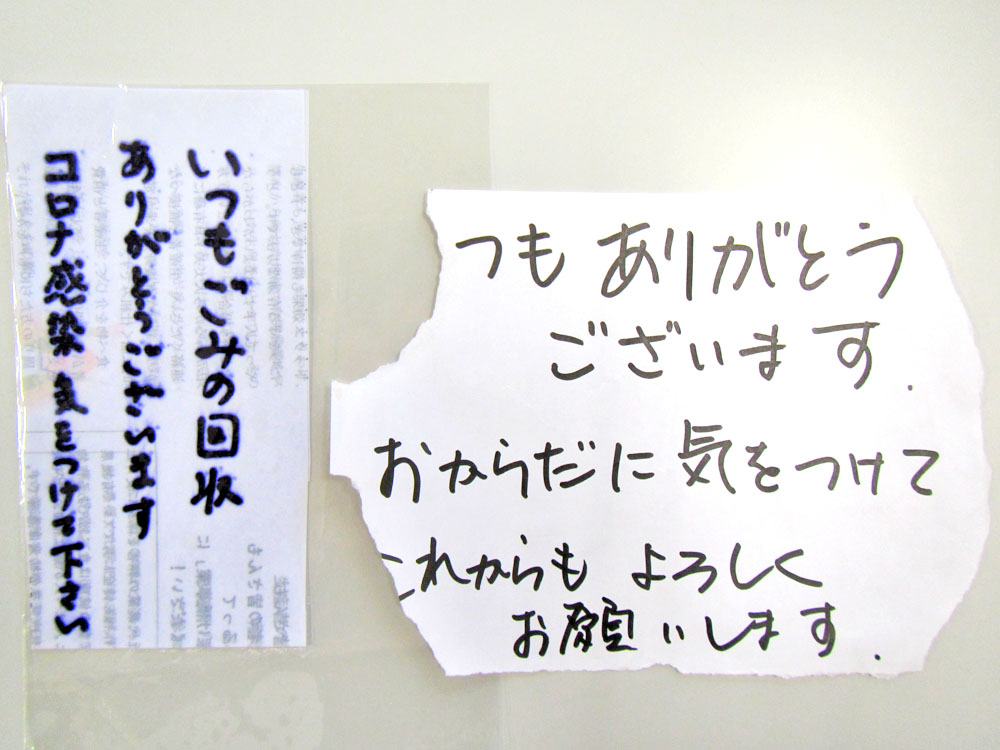 いつもごみの回収
ありがとうございます
コロナ感染 気をつけて下さい
つも ありがとう
ございます.
おからだに 気をつけて
これからも よろしく
お願いします.